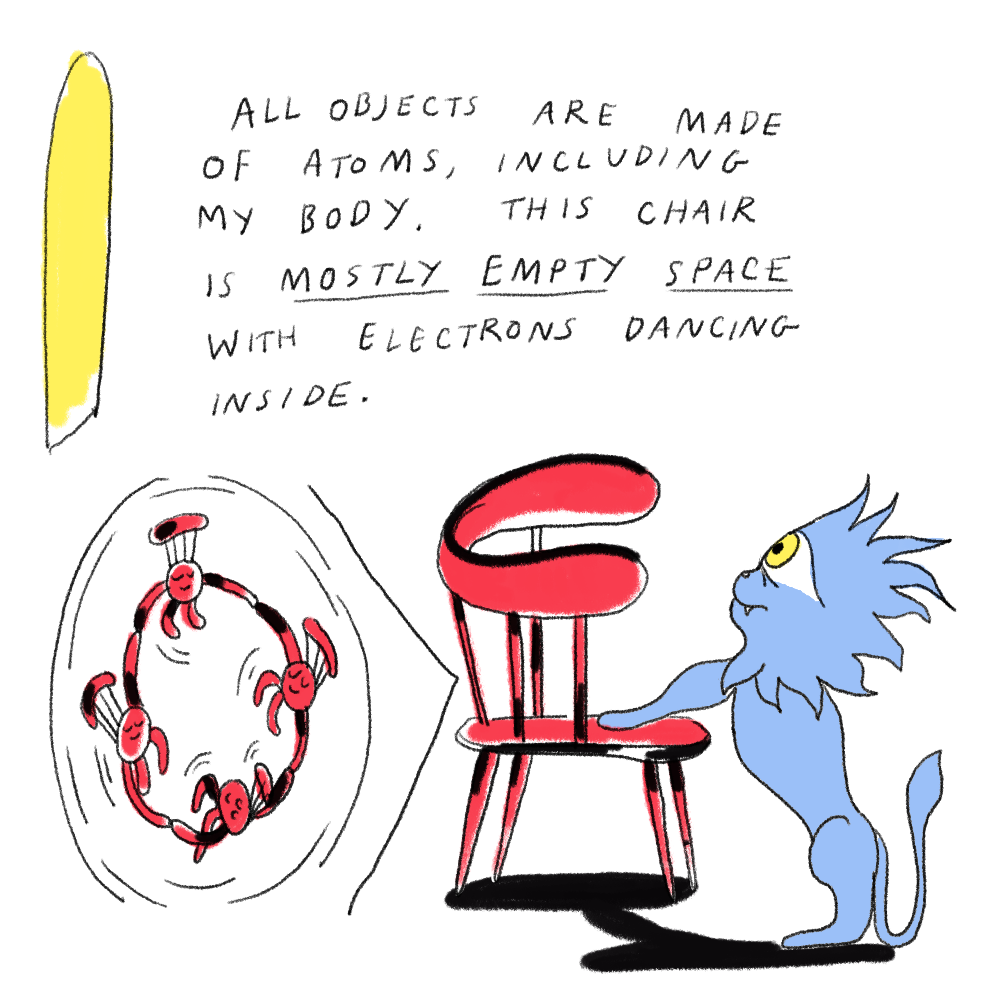 ALL OBJECTS ARE MADE
OF ATOMS, INCLUDING
MY BODY. THIS CHAIR
IS MOSTLY EMPTY SPACE
WITH ELECTRONS DANCING
INSIDE.